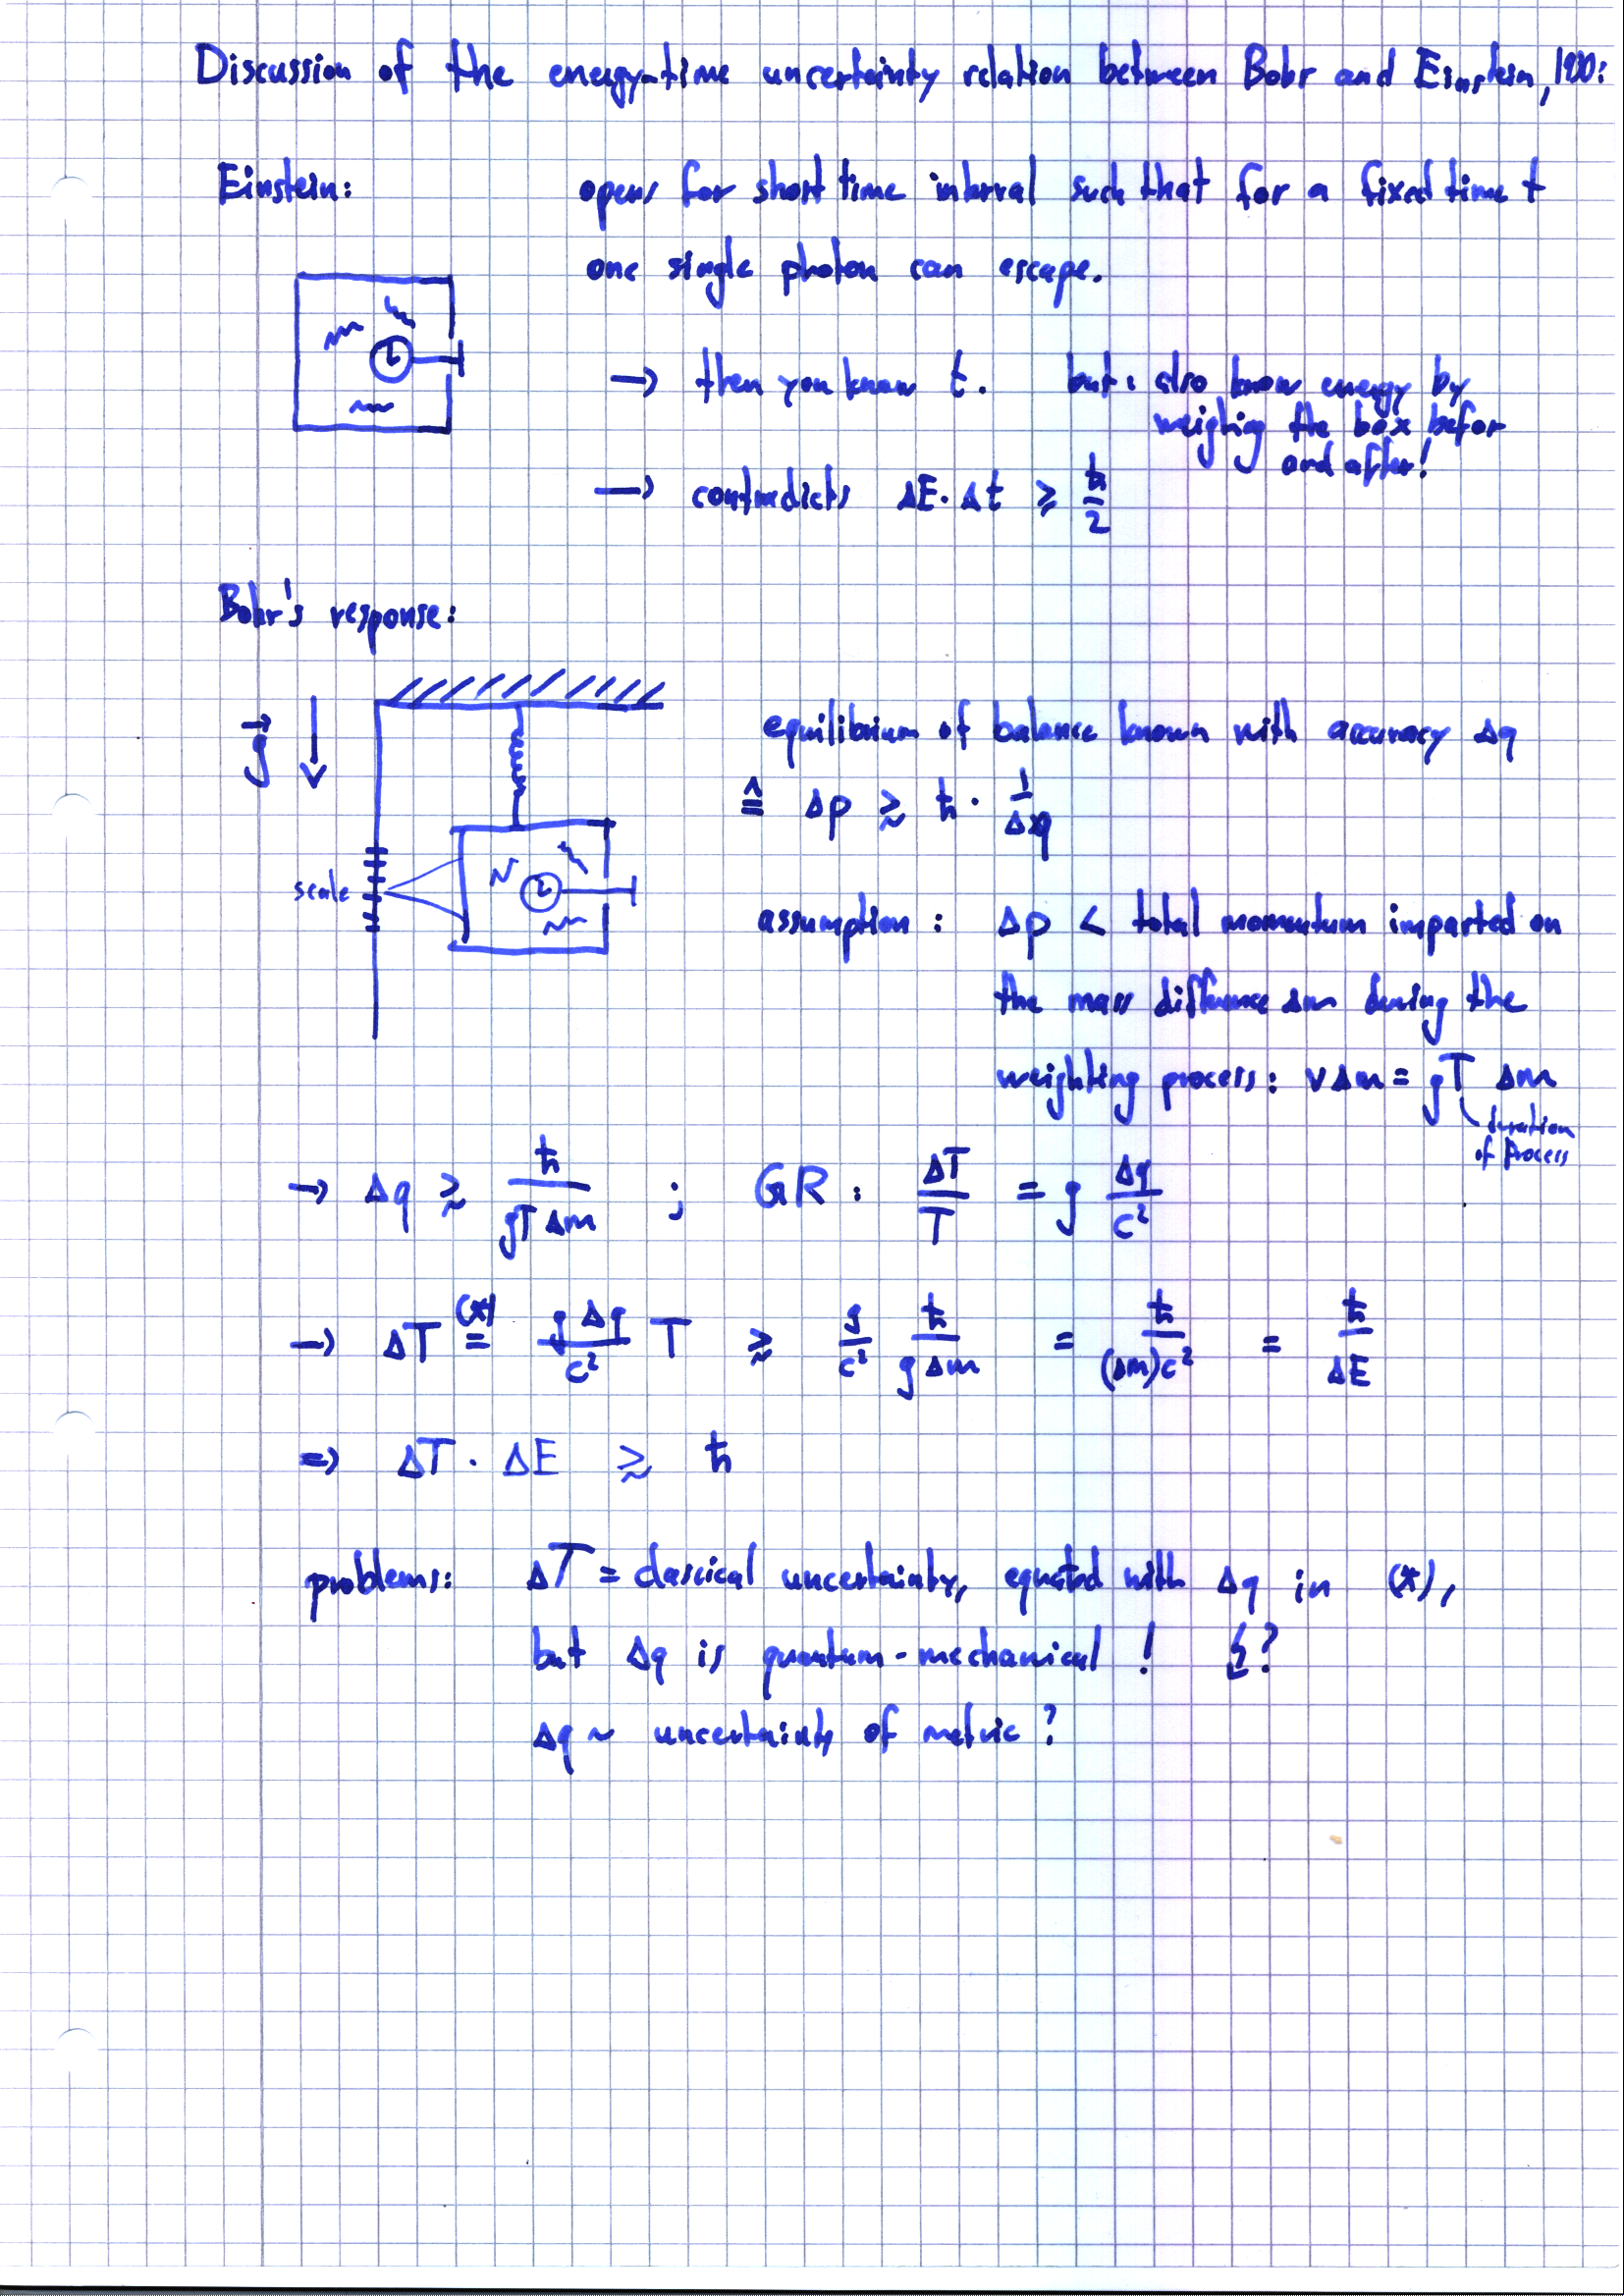 Discussion of the energy-time uncertainty relation between Bohr and Einstein, 1930:
Einstein:
opens for short time interval such that for a fixed time t
one single photon can escape.
→ then you know t. but: also know energy by
weighing the box befor
and after!
→ contradicts ΔE · Δt ≥ ħ/2
Bohr's response:
g⃗
equilibrium of balance known with accuracy Δq
≙ Δp ≳ ħ · 1/Δq
scale
assumption: Δp < total momentum imparted on
the mass difference Δm during the
weighting process: vΔm = gT Δm
duration
of process
→ Δq ≳ ħ/(gT Δm) ; GR: ΔT/T = g Δq/c²
→ ΔT (*)= (g Δq/c²) T ≳ g/c² ħ/(g Δm) = ħ/((Δm)c²) = ħ/ΔE
⇒ ΔT · ΔE ≳ ħ
problems: ΔT = classical uncertainty, equated with Δq in (*),
but Δq is quantum-mechanical ! ↯?
Δq ~ uncertainty of metric?